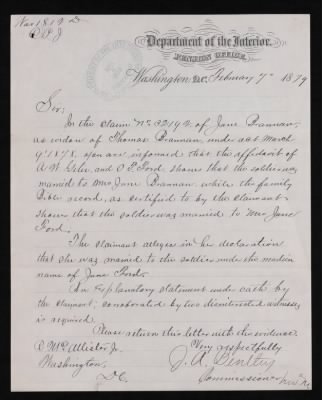 War 1812
O.P.J
Department of the Interior,
PENSION OFFICE,
Washington D.C. February 7th 1879
Sir;
In the claim No 32192 of Jane Brannan,
as widow of Thomas Brannan, under act March
9" 1878, you are informed that the affidavit of
A. W. and O. P. Ford, shows that the soldier was
married to Mrs Jane Brannan, while the family
Bible record, as certified to by the claimant
shows that the soldier was married to Mrs Jane
Ford.
The claimant alleges in her declaration
that she was married to the soldier under the maiden
name of Jane Ford.
An Explanatory statement under oath by
the claimant, corroborated by two disinterested witnesses
is required.
Please return this letter with the evidence.
Very respectfully
J. A. Bentley
Commissioner
Allister Jr.
Washington,
D.C.